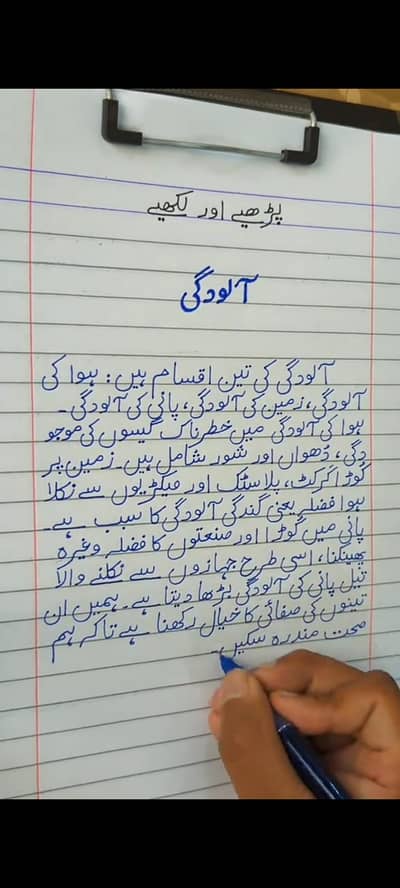 پڑھیے اور لکھیے
آلودگی
آلودگی کی تین اقسام ہیں: ہوا کی
آلودگی، زمین کی آلودگی، پانی کی آلودگی۔
ہوا کی آلودگی میں خطرناک گیسوں کی موجو
دگی، دُھواں اور شور شامل ہیں۔ زمین پر
کوڑا کرکٹ، پلاسٹک اور فیکٹریوں سے نکلا
ہوا فضلہ یعنی گندگی آلودگی کا سبب ہے۔
پانی میں کوڑا اور صنعتوں کا فضلہ وغیرہ
پھینکنا، اسی طرح جہازوں سے نکلنے والا
تیل پانی کی آلودگی بڑھا دیتا ہے۔ ہمیں ان
تینوں کی صفائی کا خیال رکھنا ہے تاکہ ہم
صحت مند رہ سکیں۔